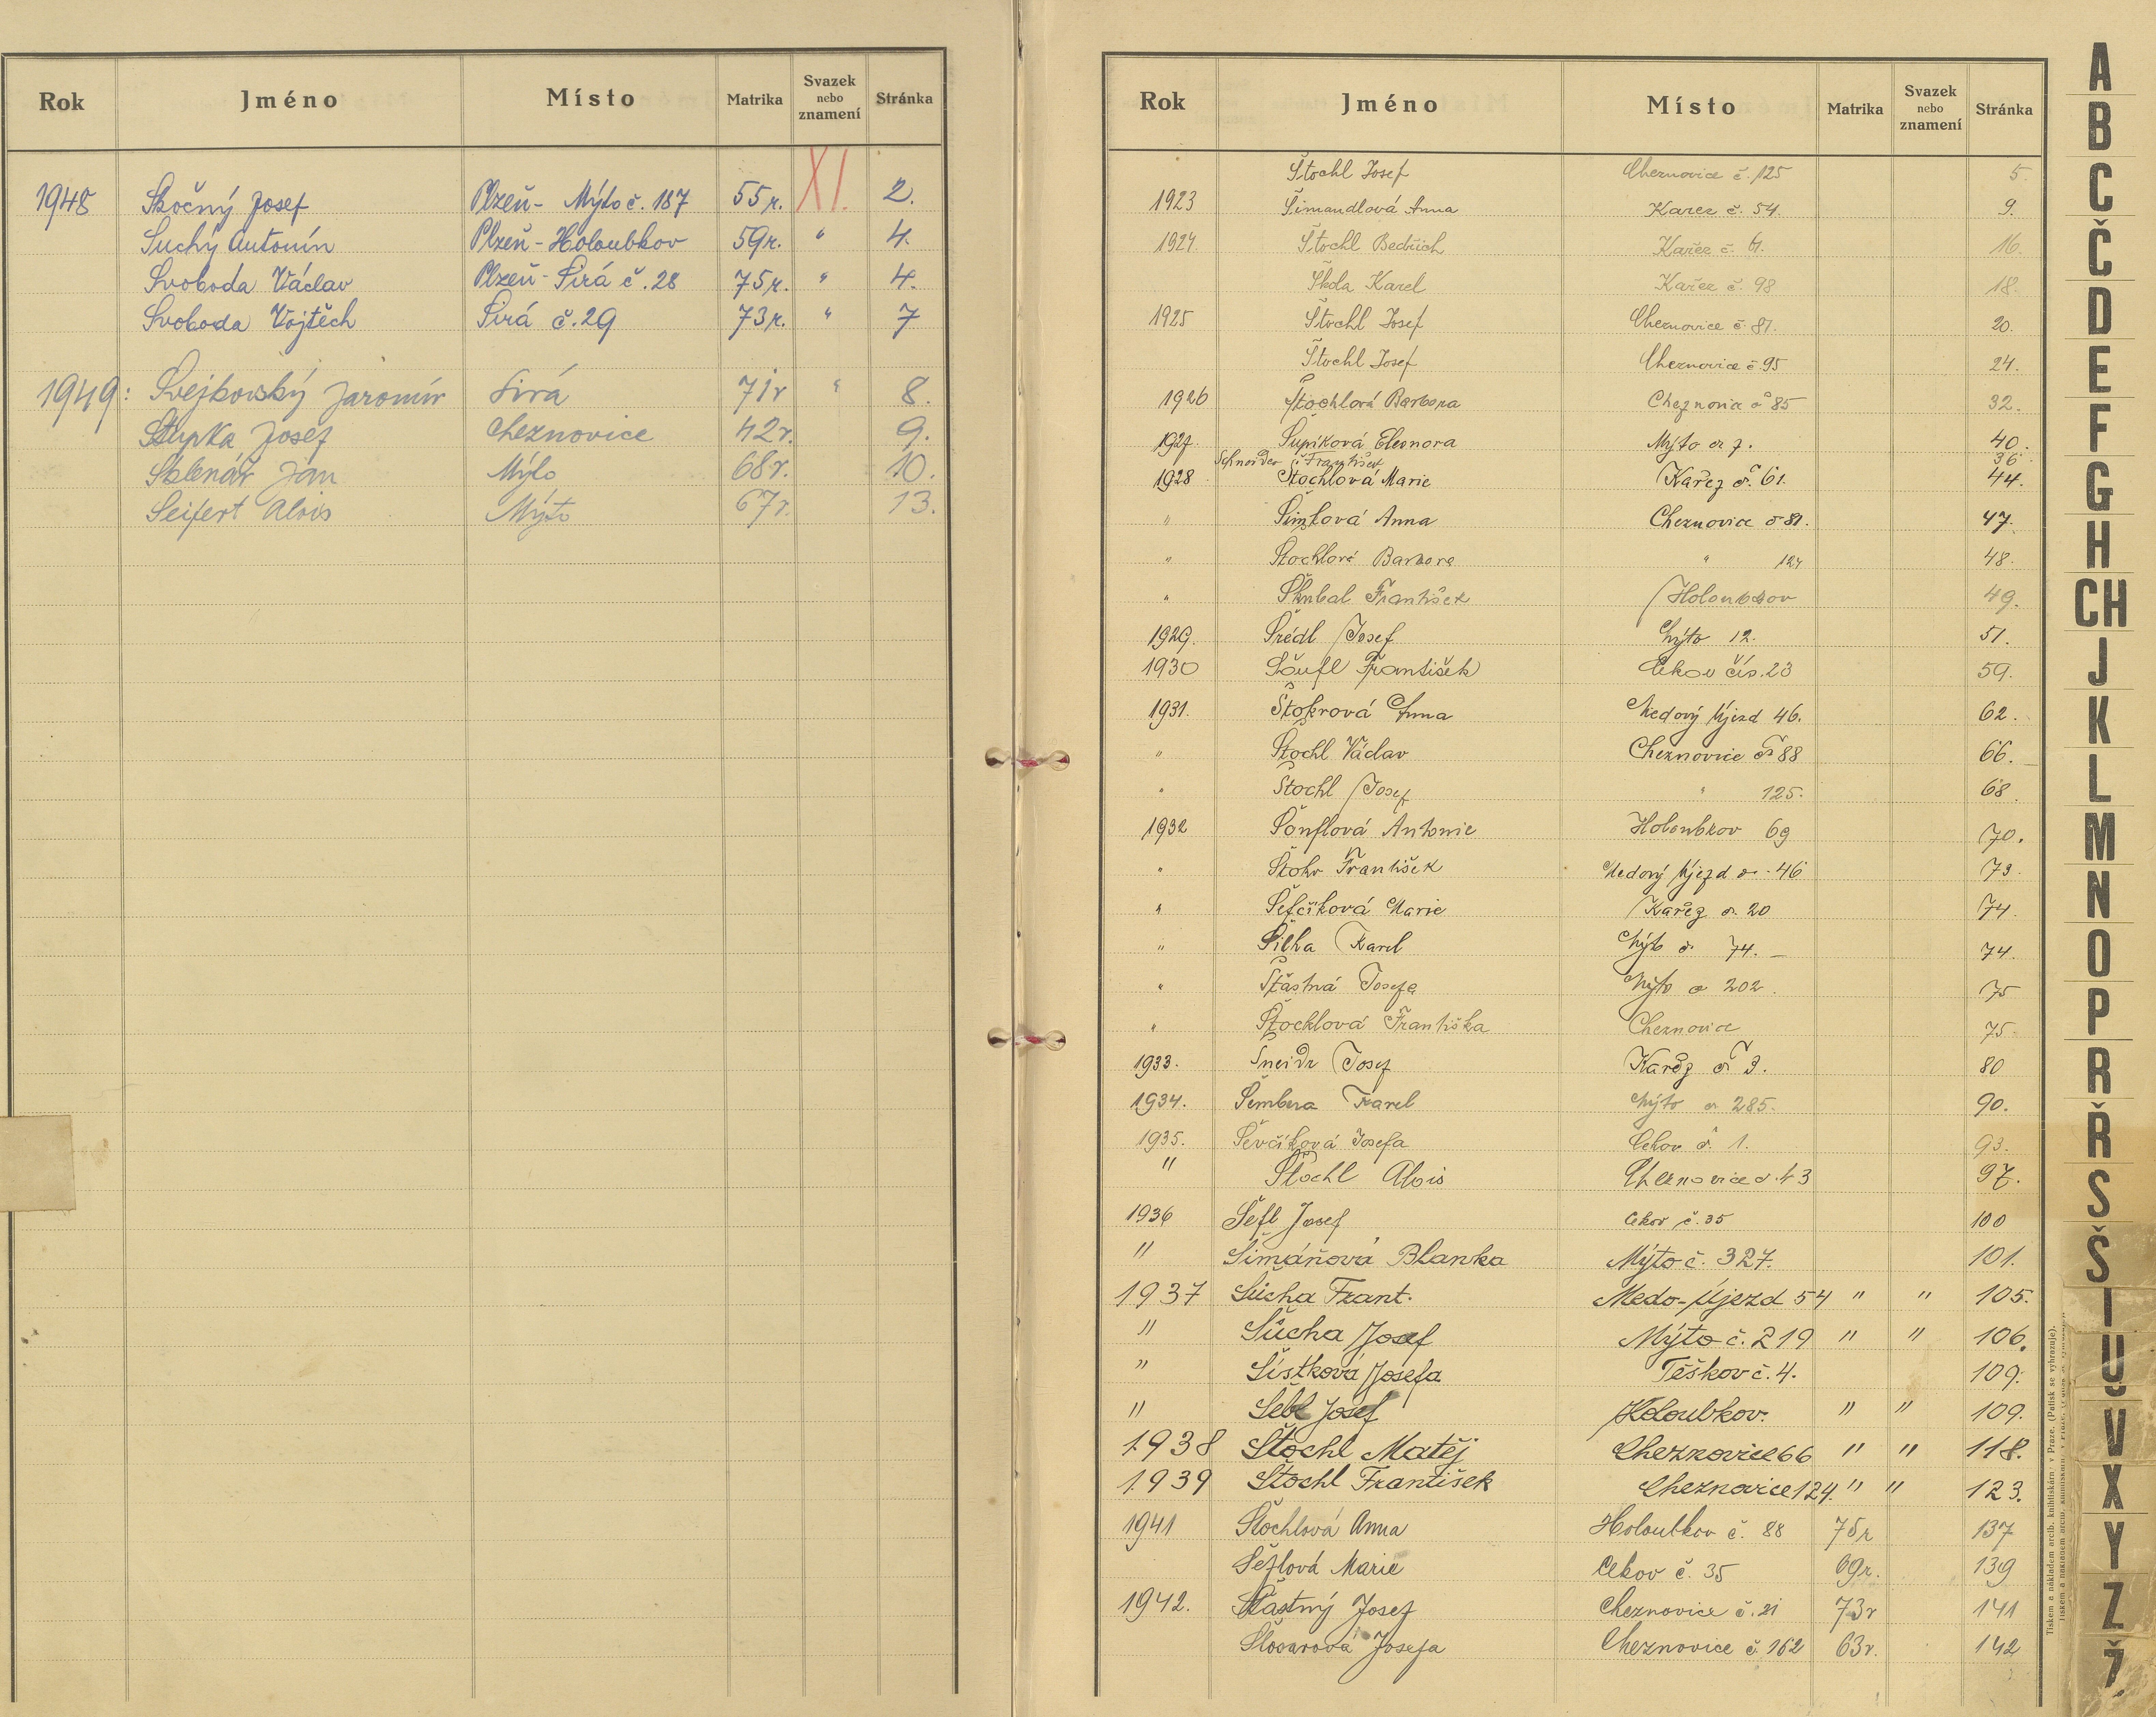 Rok Jméno Místo Matrika Svazek nebo znamení Stránka
1948 Skočný Josef Plzeň - Mýto č. 187 55 r. XI. 2.
Suchý Antonín Plzeň - Holoubkov 59r. " 4.
Svoboda Václav Plzeň - Sirá č. 28 75r. " 4.
Svoboda Vojtěch Sirá č. 29 73r. " 7
1949: Svejkovský Jaromír Sirá 71r " 8.
Stupka Josef Cheznovice 42r. 9.
Sklenář Jan Mýto 68r. 10.
Seifert Alois Mýto 67r. 13.
Rok Jméno Místo Matrika Svazek nebo znamení Stránka
Štochl Josef Cheznovice č. 125 5.
1923 Šimandlová Anna Karez č. 54. 9.
1924 Štochl Bedřich Kařez č. 61. 16.
Škola Karel Kařez č. 98 18.
1925 Štochl Josef Cheznovice č. 81. 20.
Štochl Josef Cheznovice č. 95 24.
1926 Štochlová Barbora Cheznovice č 85 32.
1927. Šupiková Eleonora Mýto č 7. 40.
Schneider František 36
1928 Štochlová Marie Kařez č. 61. 44.
" Anna Cheznovice č 81. 47.
" Štochlová Barbora " 124 48.
" Škubal František Holoubkov 49.
1929. Šrédl Josef Mýto 12. 51.
1930 Šoufl František Cekov čís. 23 59.
1931. Štokrová Anna Medový Újezd 46. 62.
" Štochl Václav Cheznovice č 88 66.
" Štochl Josef " 125. 68.
1932 Šouflová Antonie Holoubkov 69 70.
" Štokr František Medový Újezd č. 46 73.
" Šefčíková Marie Kařez č. 20 74.
" Šilha Karel Mýto č. 74. 74.
" Šťastná Josefa Mýto č 202. 75
" Štochlová Františka Cheznovice 75.
1933. Šneidr Josef Kařez č 3. 80
1934. Šembera Karel Mýto č 285. 90.
1935. Ševčíková Josefa Cekov č. 1. 93.
" Štochl Alois Cheznovice č. 43 97.
1936 Šefl Josef Cekov č. 35 100
" Šimáňová Blanka Mýto č. 327. 101.
1937 Šůcha Frant. Medo-Újezd 54 " " 105.
" Šůcha Josef Mýto č. 219 " " 106.
" Šístková Josefa Těškov č. 4. 109.
" Šebl Josef Holoubkov. " " 109.
1938 Štochl Matěj Cheznovice 66 " " 118.
1939 Štochl František Cheznovice 124. " " 123.
1941 Štochlová Anna Holoubkov č. 88 75r 137
Šeflová Marie Cekov č. 35 69r. 139
1942. Šťastný Josef Cheznovice č. 21 73r 141
Josefa Cheznovice č. 162 63r. 142
A
B
C
Č
D
E
F
G
H
CH
J
K
L
M
N
O
P
R
Ř
S
Š
T
U
V
X
Y
Z
Ž
Tiskem a nákladem arcib. knihtiskárny v Praze. (Patisk se vyhrazuje).